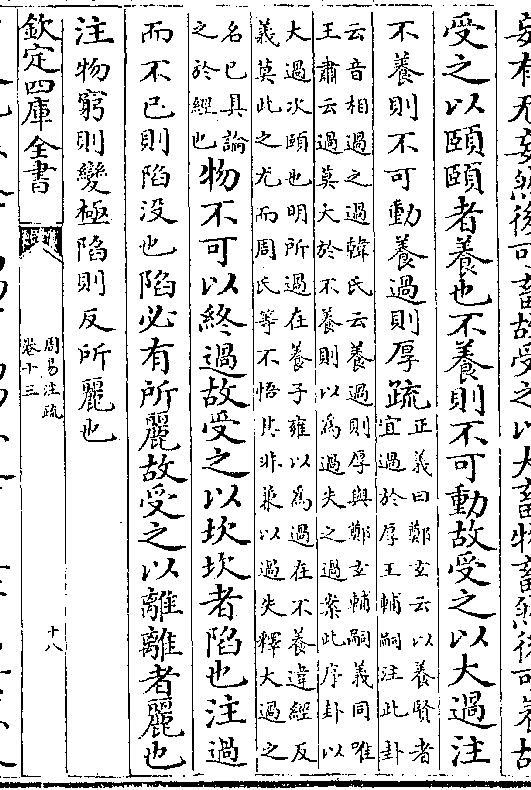 无妄然後可畜故受之以大畜物畜然後可養故
受之以頤頤者養也不養則不可動故受之以大過注
不養則不可動養過則厚疏
正義曰鄭玄云以養賢者
宜過於厚王輔嗣注此卦
云音相過之過韓氏云養過則厚與鄭玄輔嗣義同唯
王肅云過莫大於不養則以為過失之過案此序卦以
大過次頤也明所過在養子雍以為過在不養違經反
義莫此之尤而周氏等不悟其非兼以過失釋大過之
名已具論
之於經也
物不可以終過故受之以坎坎者陷也注過
而不已則陷没也陷必有所麗故受之以離離者麗也
注物窮則變極陷則反所麗也
欽定四庫全書
周易注疏
卷十三
十八